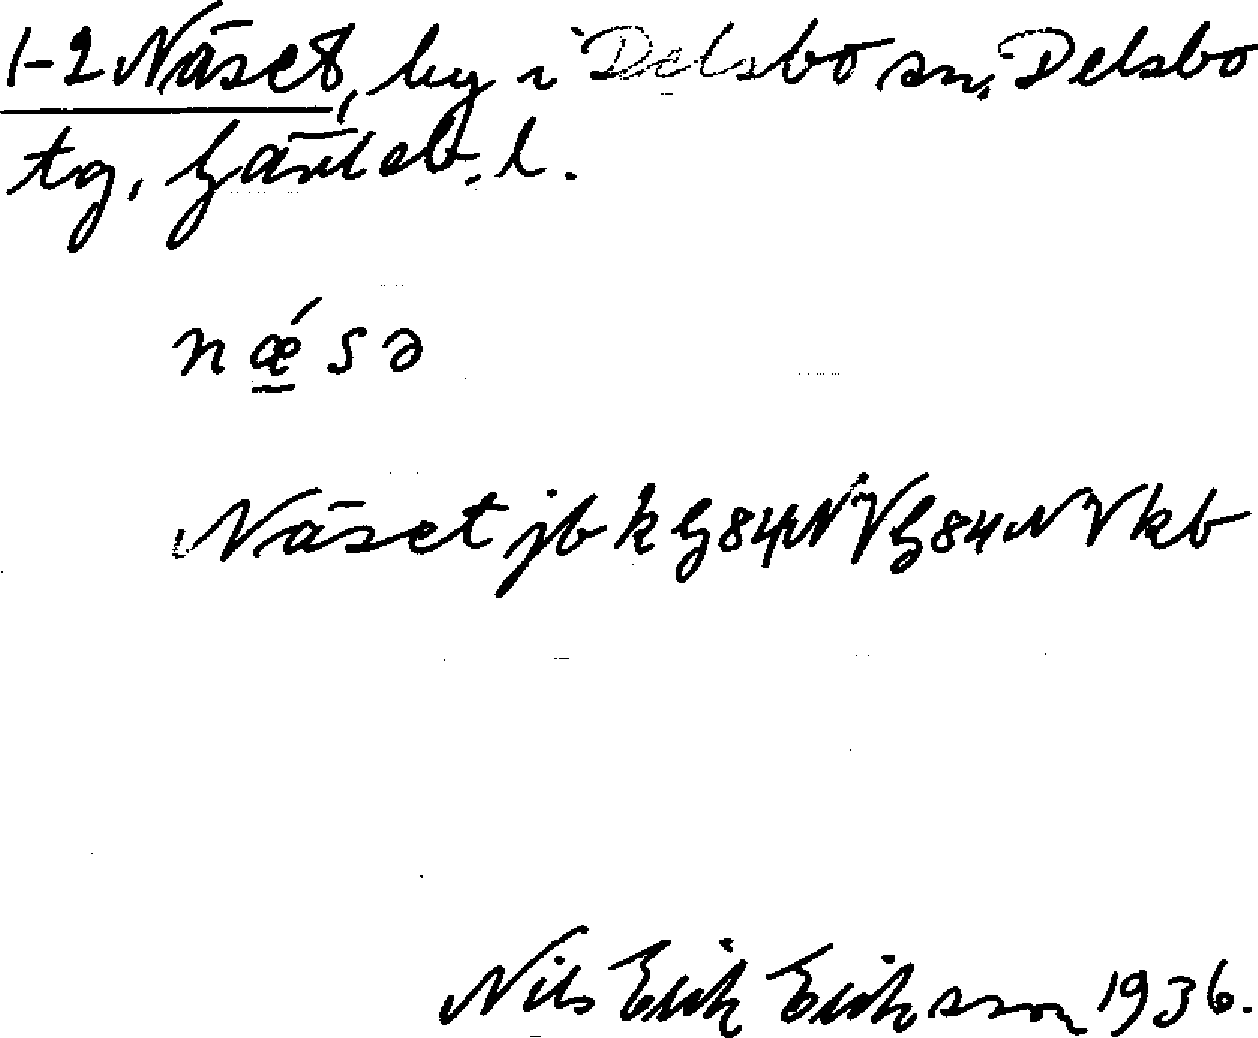 1-2 Näset, by i Delsbo sn, Delsbo
tg, Gävleb. l.
nǽ̲sə
Näset jb k G84NV G84NV kb
Nils Erik Eriksson 1936.